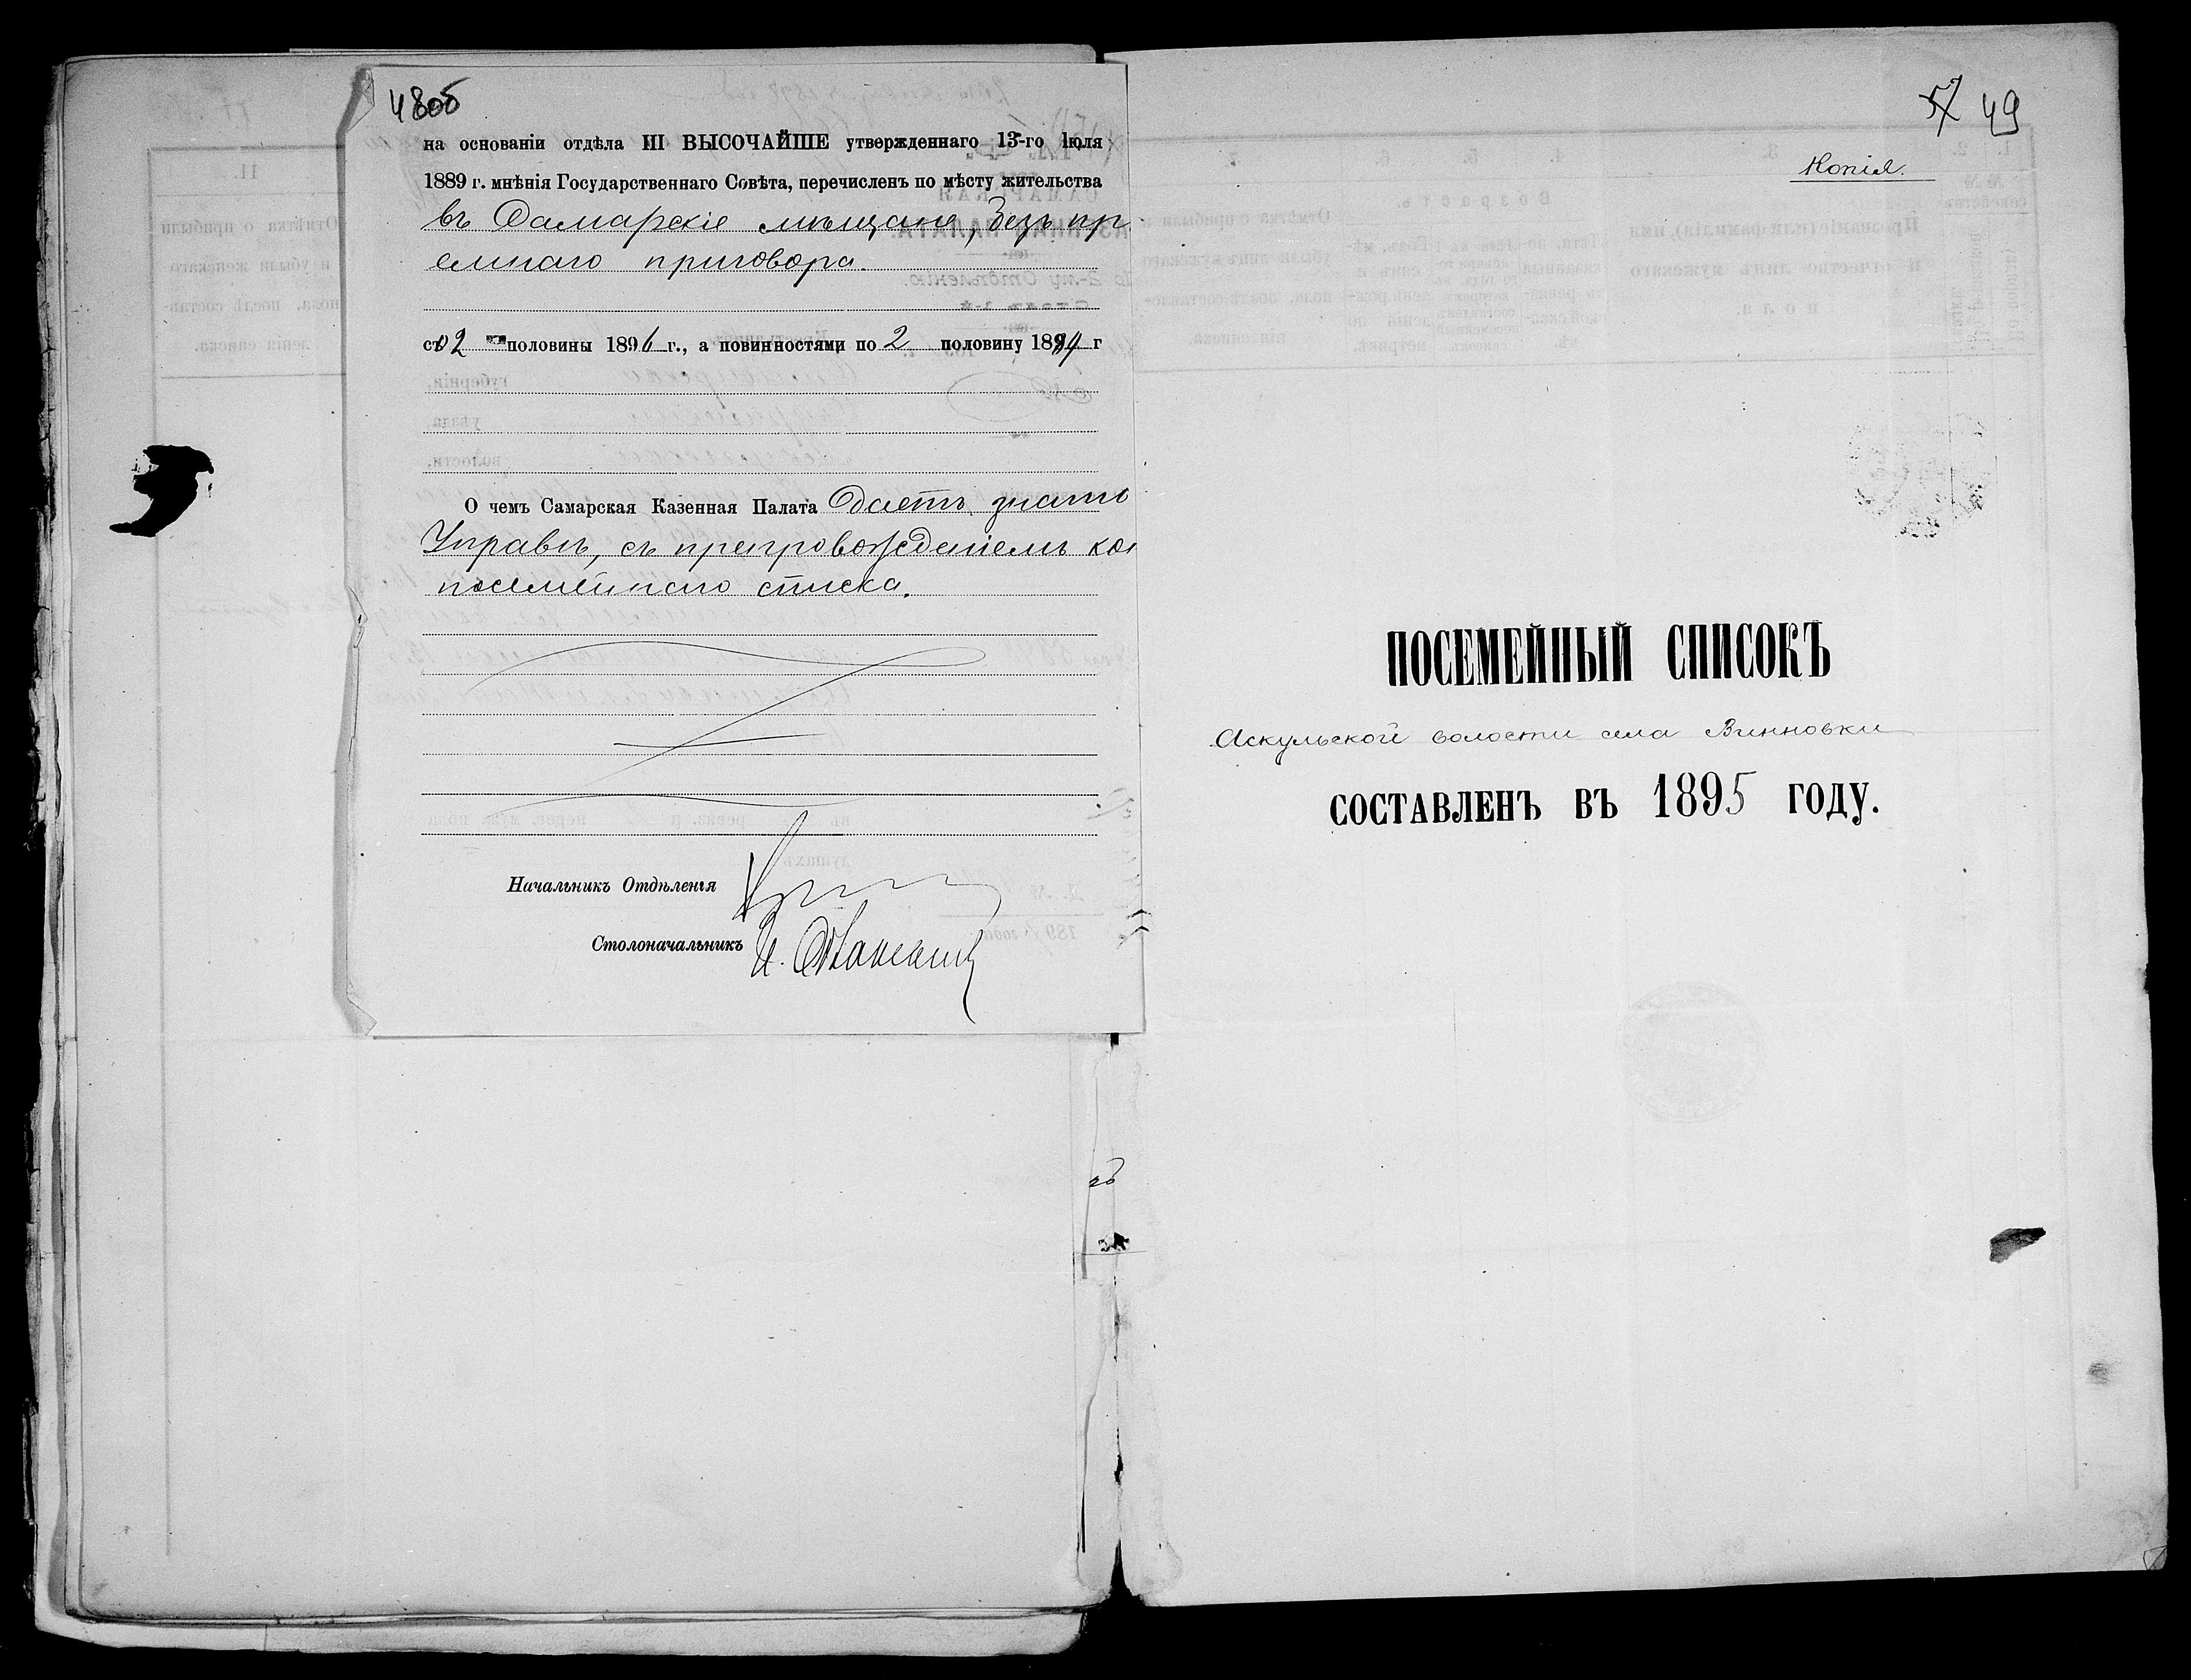 48об
на основаніи отдѣла III ВЫСОЧАЙШЕ утвержденнаго 13-го Іюля
1889 г. мнѣнія Государственнаго Совѣта, перечисленъ по мѣсту жительства
въ Самарскіе мѣщане, безъ прі
емнаго приговора.
со 2 половины 1896 г., а повинностями по 2 половину 18 г
О чемъ Самарская Казенная Палата даетъ знать
Управѣ, съ препровожденіемъ коп
посемейнаго списка.
Начальникъ Отдѣленія
Столоначальникъ
57 49
Копія.
ПОСЕМЕЙНЫЙ СПИСОКЪ
Аскульской волости села Винновки
СОСТАВЛЕНЪ ВЪ 1895 ГОДУ.